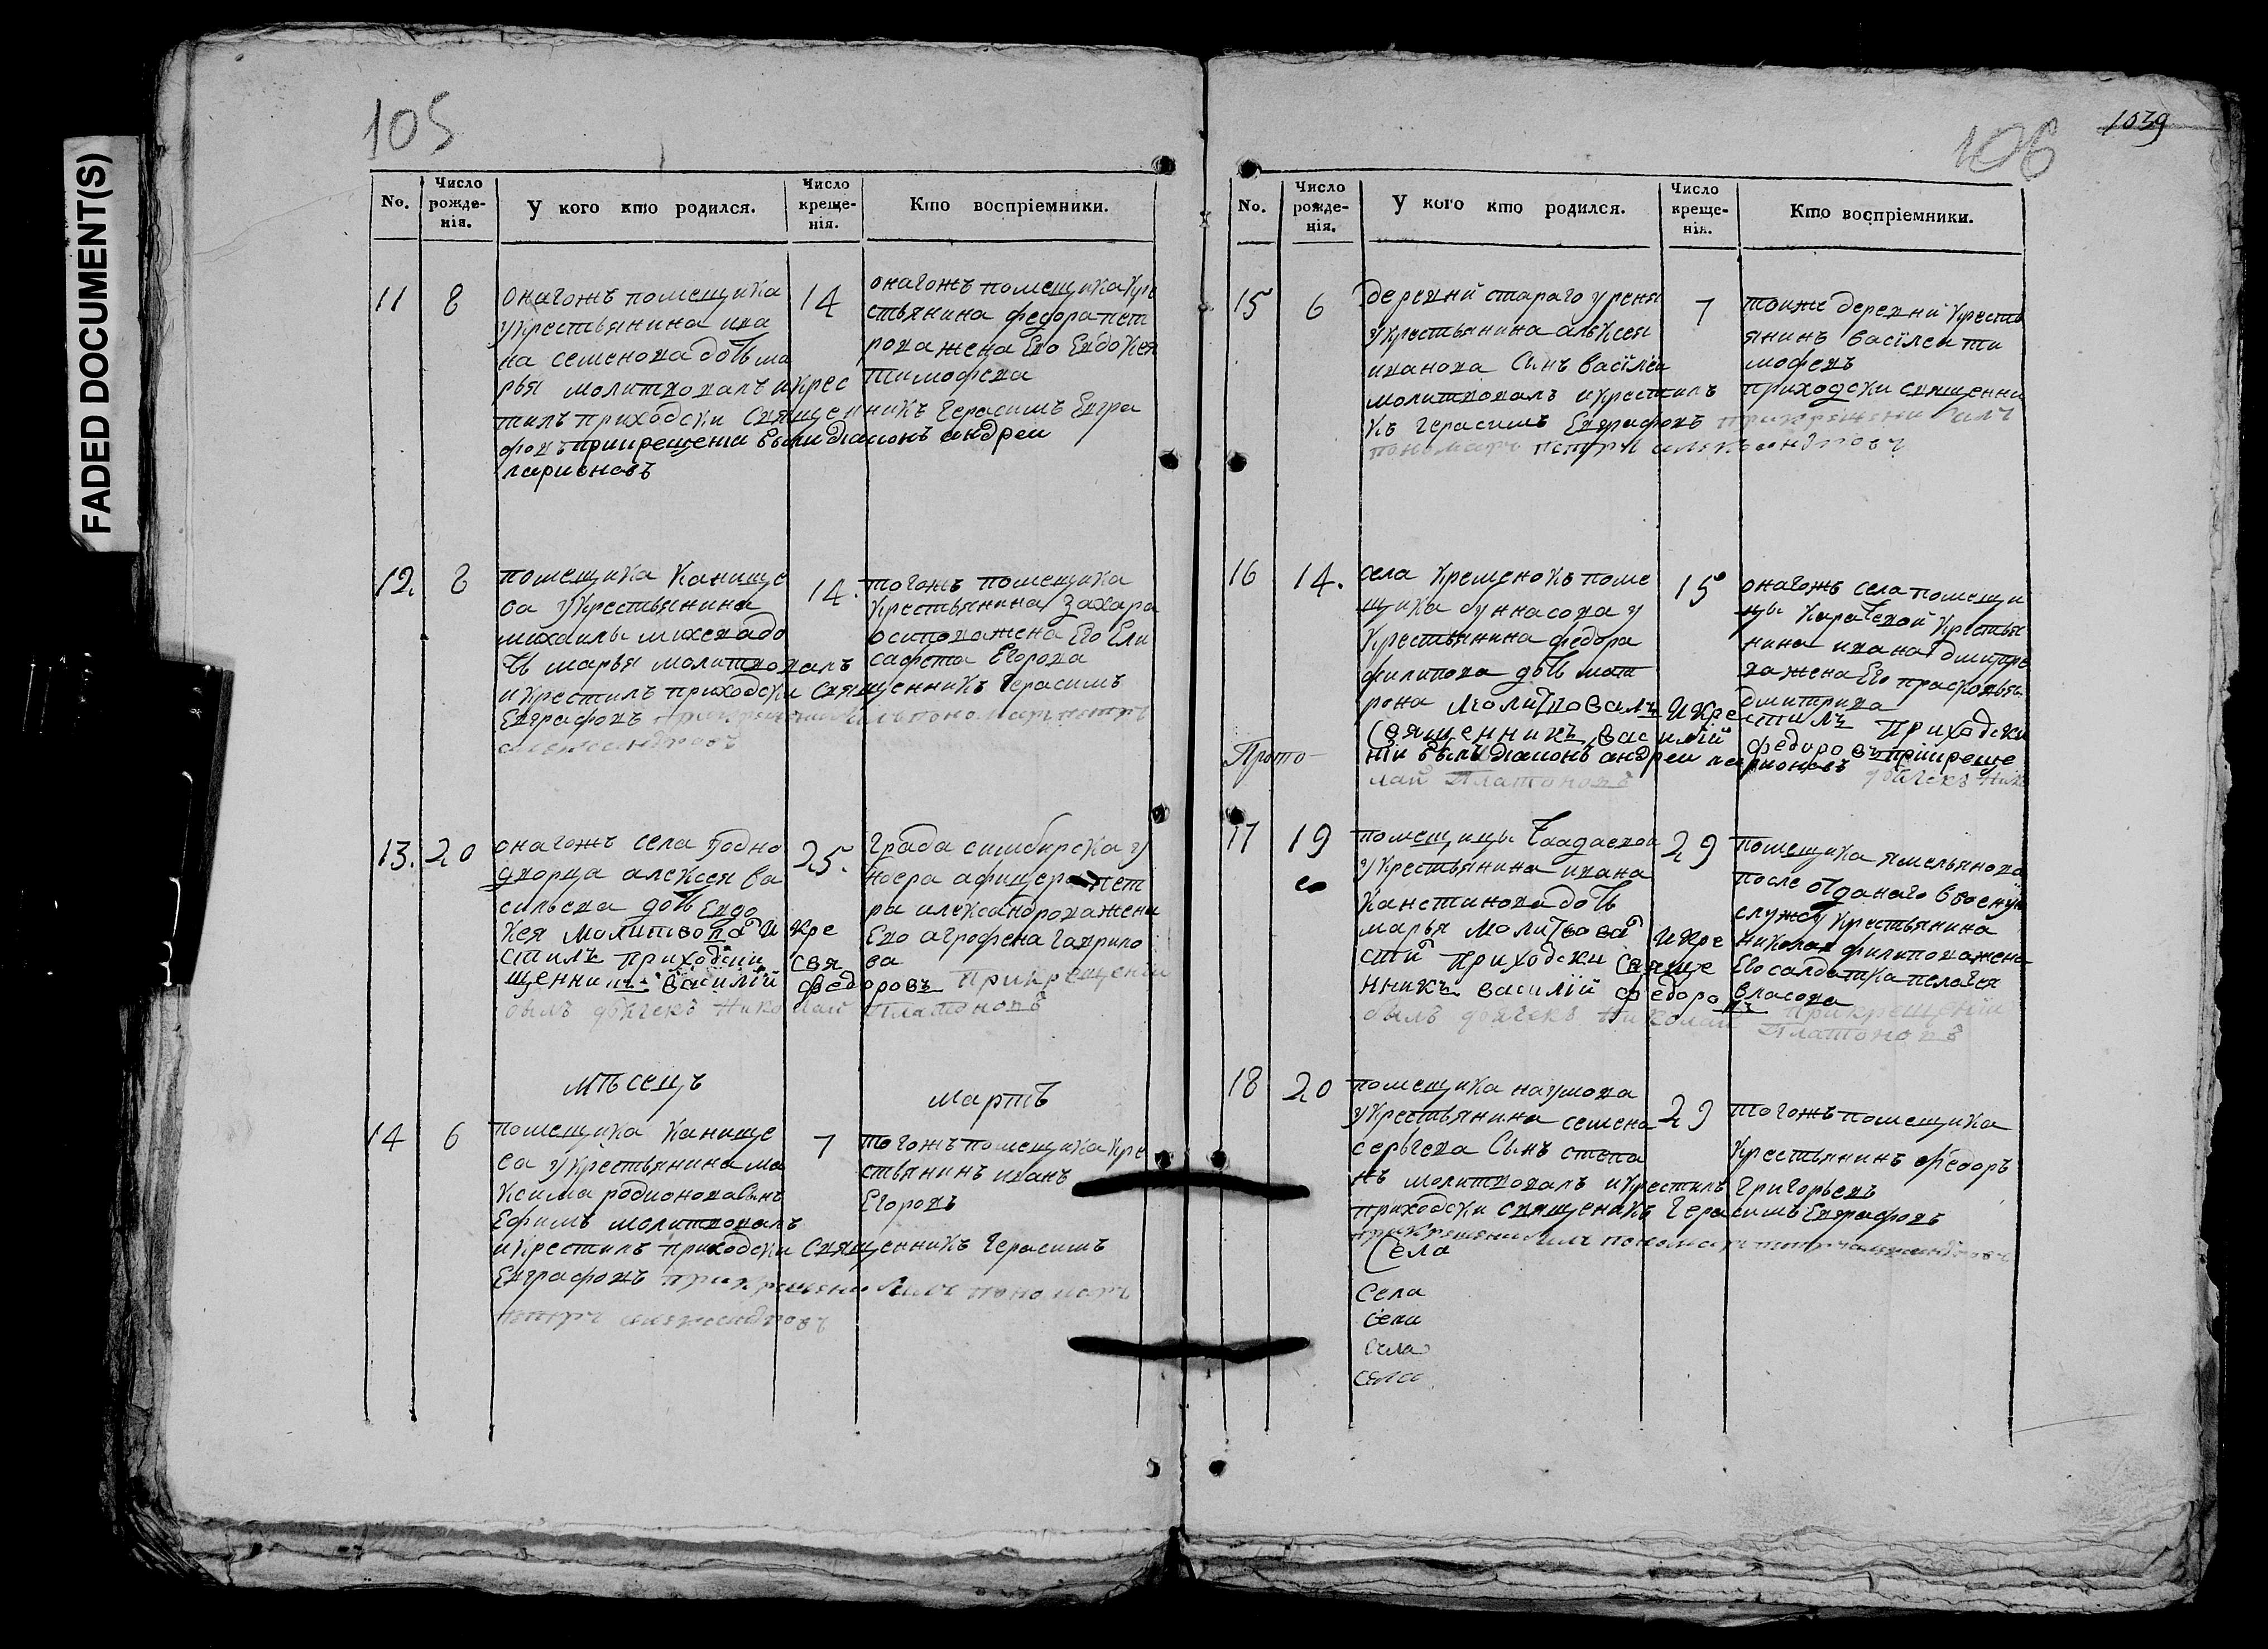 FADED DOCUMENT(S)
105
No.
Число рожде-нія.
У кого кто родился.
Число креще-нія.
Кто воспріемники.
11
8
онагожъ помещика
укрестьянина ива
на семенова дочь ма
рья молитвовалъ икрес
тилъ приходски священникъ Герасимъ Евгра
фовъ прикрещени былъ діаконъ андреи
ларионовъ
14
онагожъ помещика кре
стьянина федора пет
рова жена Ево Евдокея
тимофева
12.
8
помещика Канище
ва укрестьянина
михаилы михева до
чь марья молитвовалъ
икрестилъ приходски священникъ Герасимъ
Евграфовъ прикрещени былъ пономарь петръ
александровъ
14.
тогожъ помещика
крестьянина Захара
осипова жена Его Ели
савета Егорова
13.
20
онагожъ села уодно
дворца алексея ва
сильева дочь Евдо
кея Молитвова и кре
стилъ приходскии свя
щенникъ василій федоровъ прикрещеніи
былъ дьячекъ Николай Платоновъ
25.
града симбирска у
афицера пет
ра александрова жена
Ево агрофена гаврило
ва
мѣсецъ
мартъ
14
6
помещика Канище
ва укрестьянина ма
ксима родионова сынъ
Ефимъ молитвовалъ
икрестилъ приходски священникъ Герасимъ
Евграфовъ прикрещени былъ пономарь
петръ александровъ
7
тогожъ помещика кре
стьянинъ иванъ
Егоровъ
106
1039
No.
Число рожде-нія.
У кого кто родился.
Число креще-нія.
Кто воспріемники.
15
6
деревни стараго уреня
укрестьянина алексея
иванова Сынъ васілеи
молитвовалъ икрестилъ приходски священни
къ Герасимъ Евграфовъ прикрещени былъ
пономарь петръ александровъ
7
тоиже деревни кресть
янинъ васілеи ти
мофевъ
16
14.
села кременокъ поме
щика у
крестьянина федора
филипова дочь мат
рена Молитвовалъ Икрестилъ Приходски
Священникъ василій федоровъ прикреще
Прото-
ніи былъ діаконъ андреи ларионовъ дьячекъ Нико
лай Платоновъ
15
онагожъ села помещи
цы крестья
нина ивана дмитре
ва жена Его прасковья
дмитрива
17
19
помещицы
укрестьянина ивана
Канстинова дочь
марья Молитвова икре
сти Приходски Священникъ василій федоровъ прикрещеніи
былъ дьячекъ Николай Платоновъ
29
помещика ямельянова
после отданаго ввоеную
службу крестьянина
николая филипова жена
Его салдатка пелагея
власова
18
20
помещика наумова
укрестьянина семена
серьгева Сынъ степа
нъ молитвовалъ икрестилъ
приходски священикъ Герасимъ Евграфовъ
прикрещени былъ пономарь петръ александровъ
29
тогожъ помещика
крестьянинъ федоръ
Григорьевъ
Села
Села
села
села
села